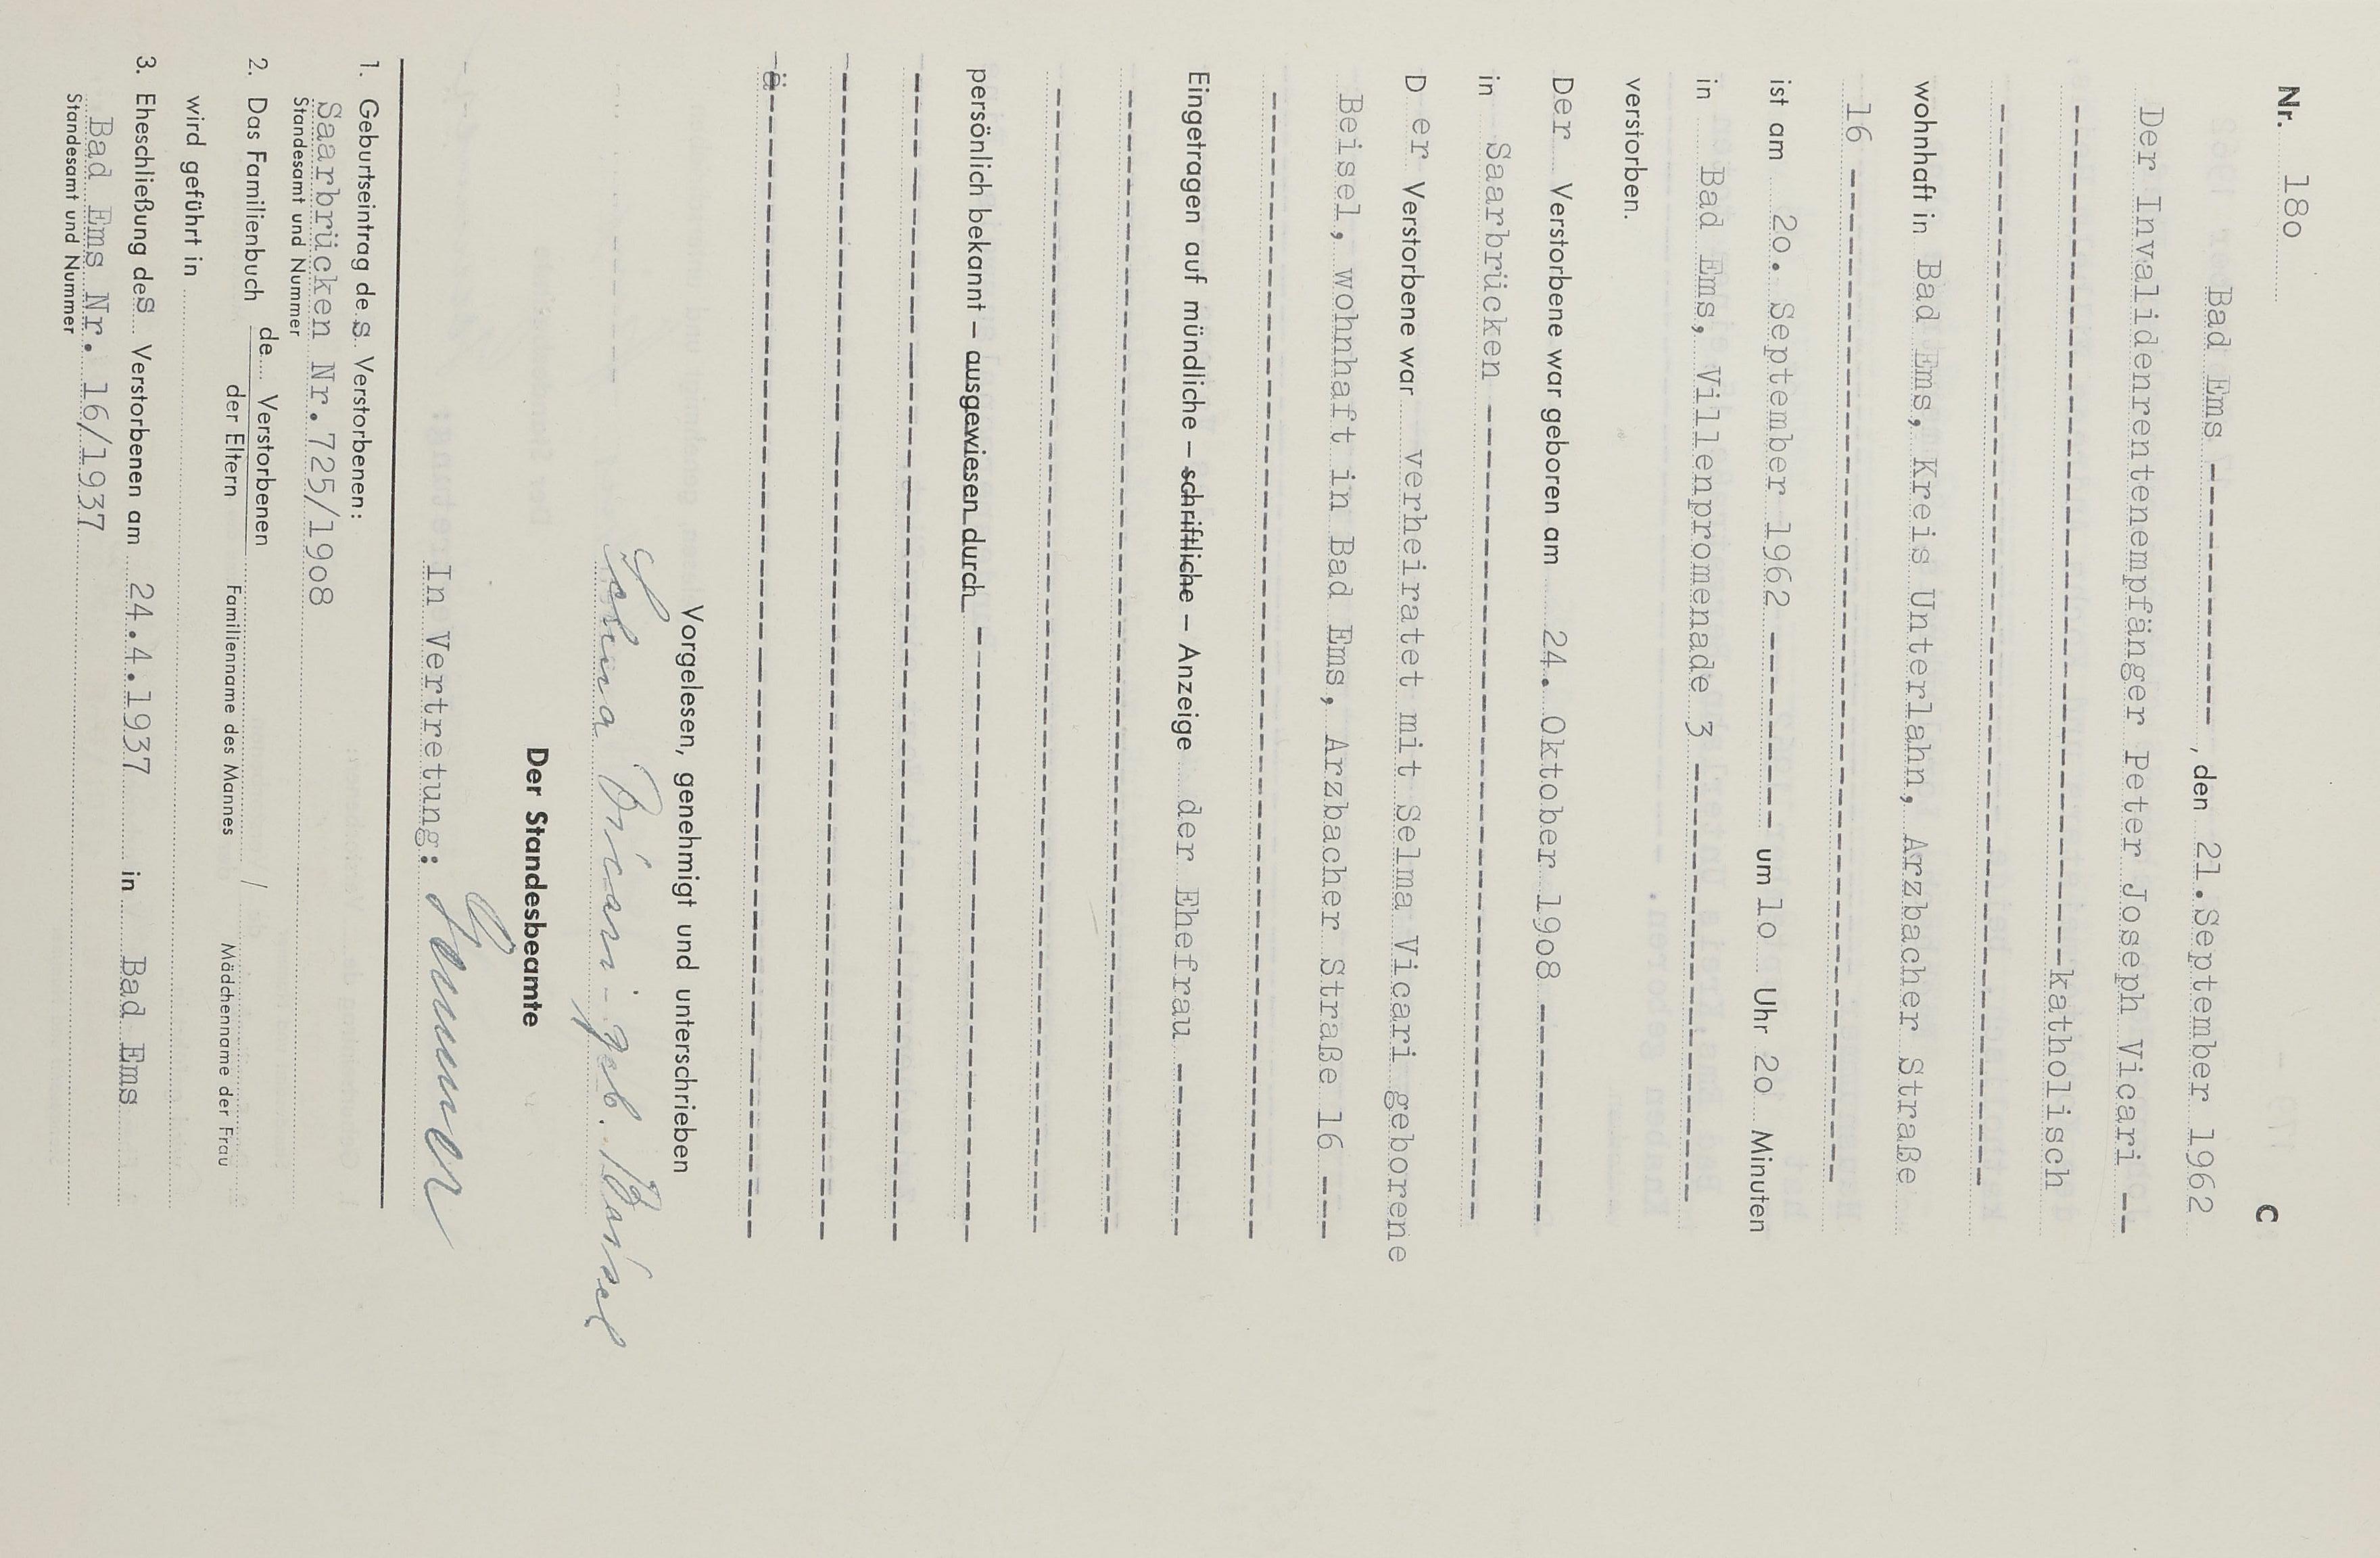 Nr. 18o
C
Bad Ems ----------- , den 21.September 1962
Der Invalidenrentenempfänger Peter Joseph Vicari --
------------------------------------katholisch
------------------------------------------------
wohnhaft in Bad Ems, Kreis Unterlahn, Arzbacher Straße
16 ---------------------------------------------
ist am 2o. September 1962 --------- um 1o Uhr 2o Minuten
in Bad Ems, Villenpromenade 3 -------------------
verstorben.
Der Verstorbene war geboren am 24. Oktober 19o8 ---------
in Saarbrücken -----------------------------------
D er Verstorbene war verheiratet mit Selma Vicari geborene
Beisel, wohnhaft in Bad Ems, Arzbacher Straße 16 ---
------------------------------------------------
Eingetragen auf mündliche – schriftliche – Anzeige der Ehefrau -------
------------------------------------------------
------------------------------------------------
persönlich bekannt – ausgewiesen durch --------------------------
------------------------------------------------
------------------------------------------------
-ä----------------------------------------------
Vorgelesen, genehmigt und unterschrieben
Selma Vicari - geb. Beisel
Der Standesbeamte
In Vertretung:
1. Geburtseintrag des Verstorbenen:
Saarbrücken Nr.725/19o8
Standesamt und Nummer
2. Das Familienbuch de.... Verstorbenen
der Eltern
Familienname des Mannes / Mädchenname der Frau
wird geführt in
3. Eheschließung des Verstorbenen am 24.4.1937 in Bad Ems
Bad Ems Nr. 16/1937
Standesamt und Nummer